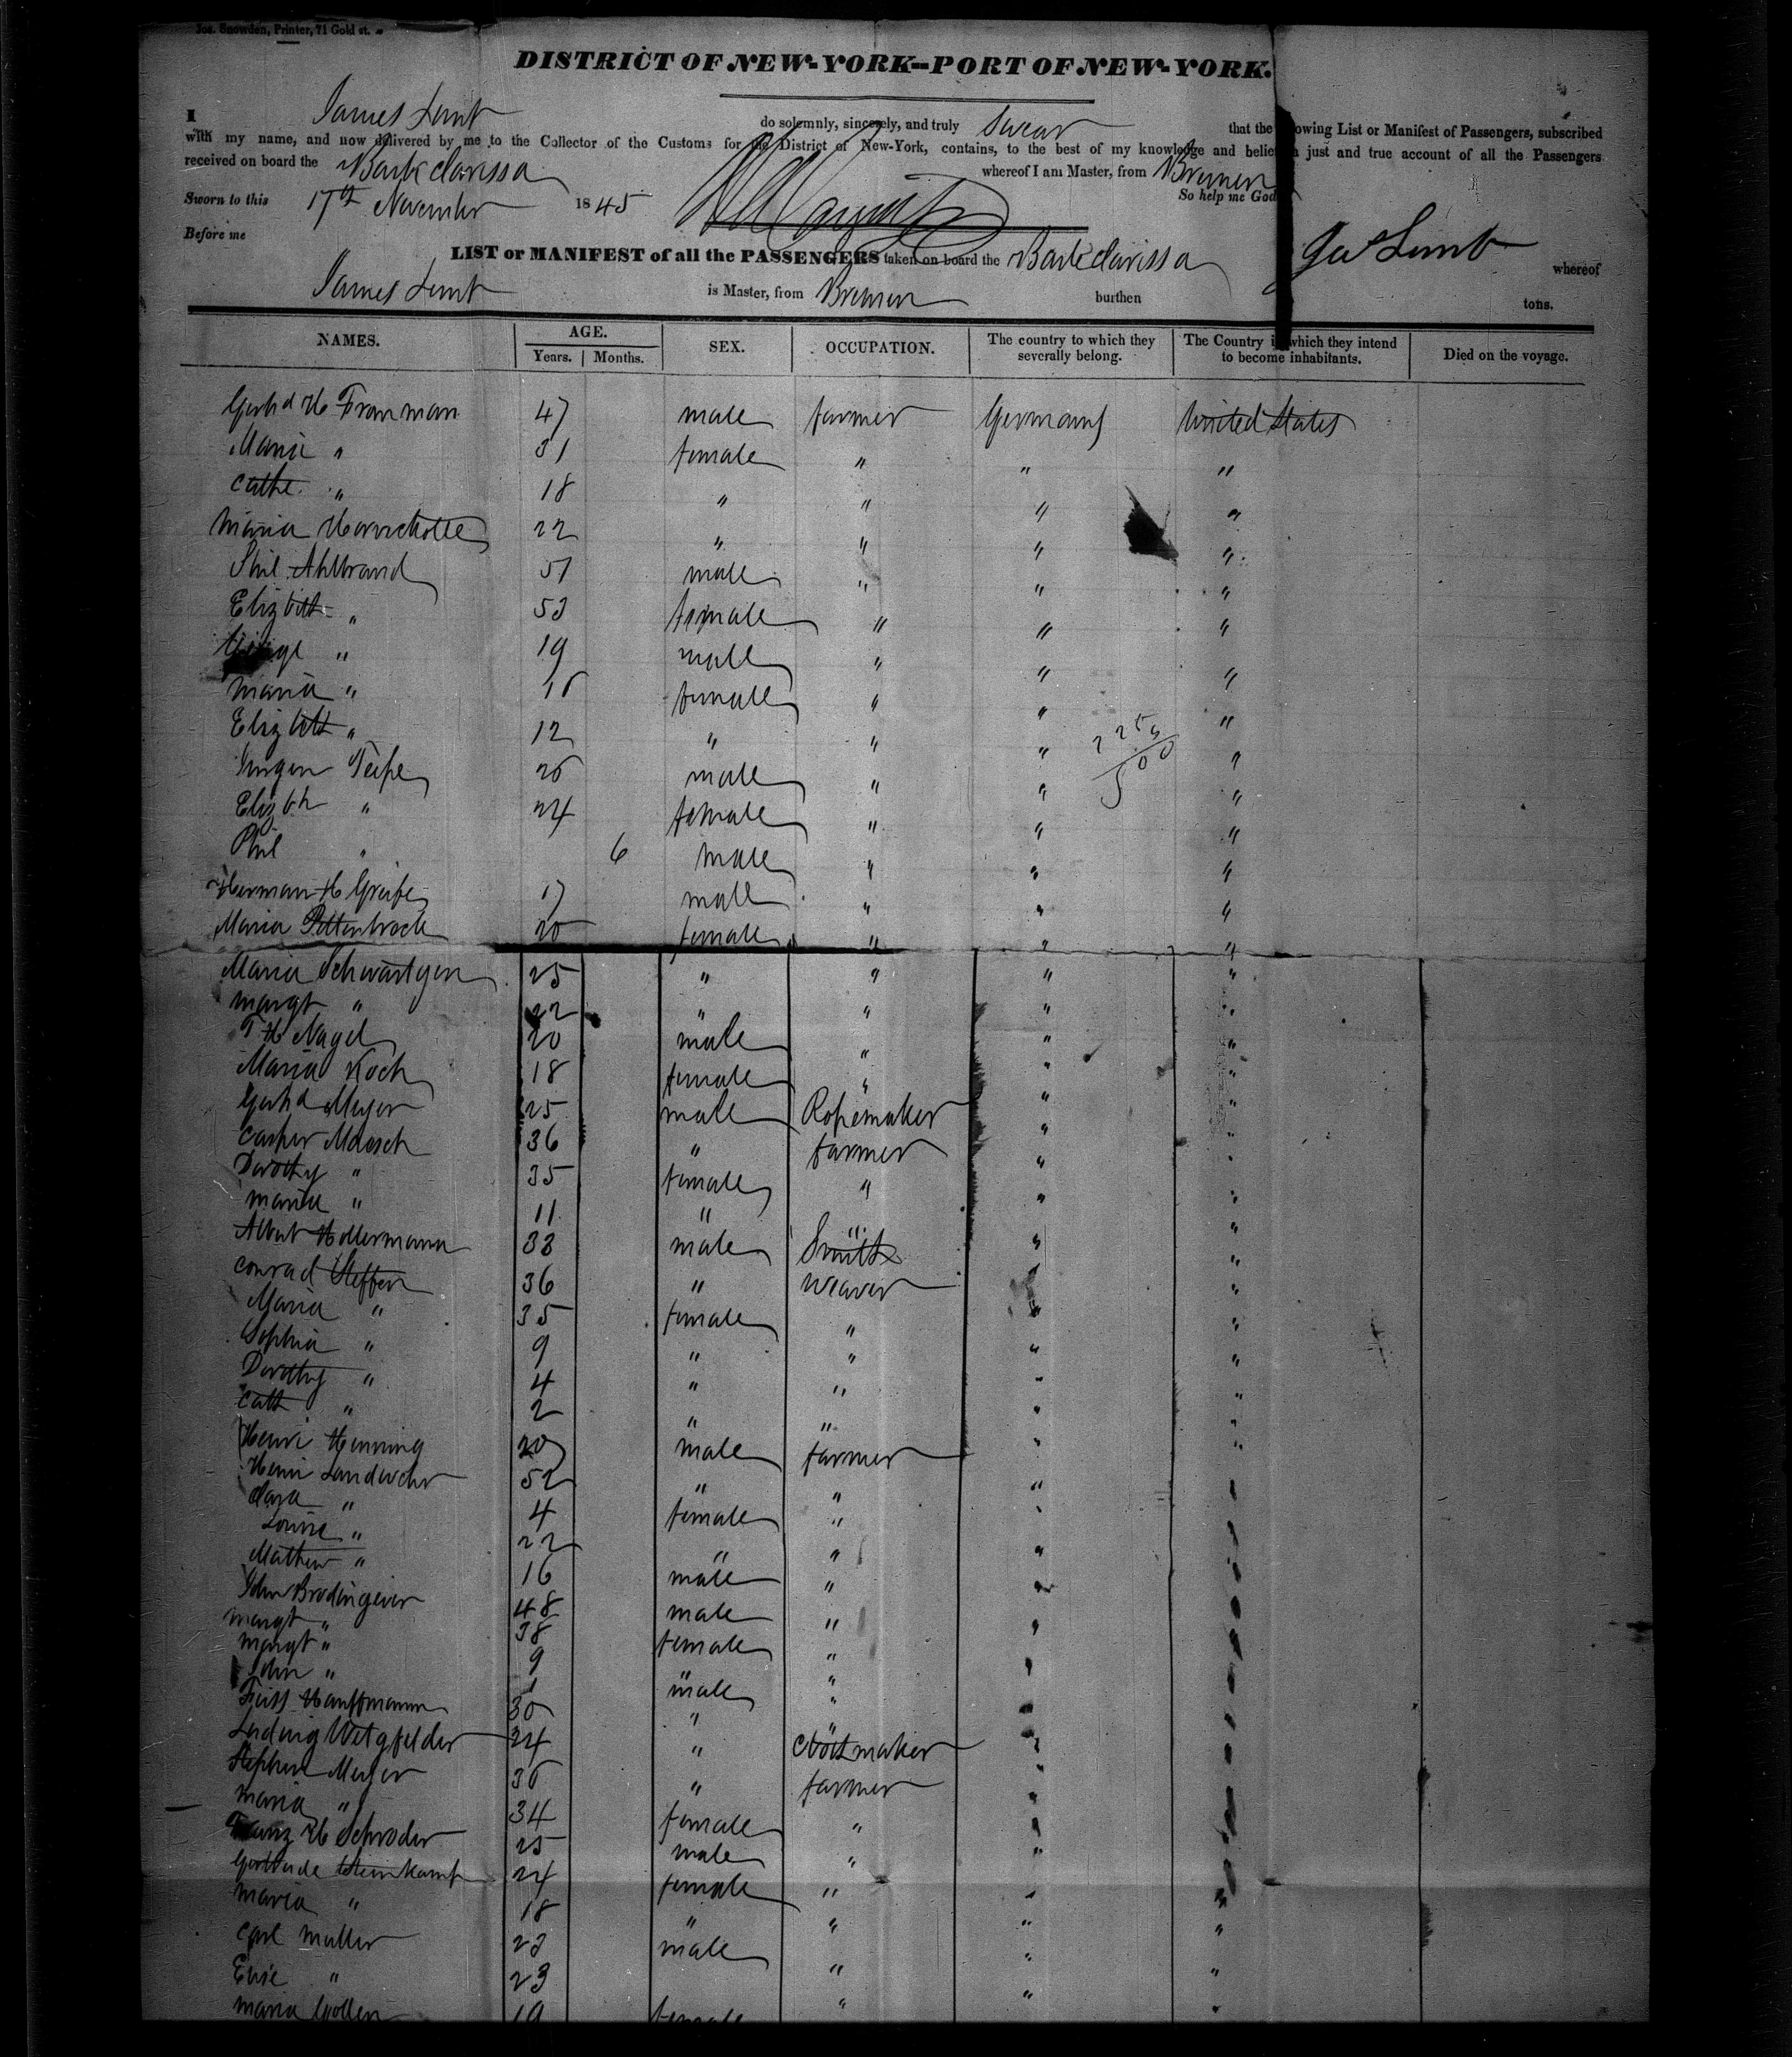 Jos. Snowden, Printer, 71 Gold st.
DISTRICT OF NEW-YORK--PORT OF NEW-YORK.
I James do solemnly, sincerely, and truly Swear that the owing List or Manifest of Passengers, subscribed
with my name, and now delivered by me to the Collector of the Customs for the District of New-York, contains, to the best of my knowledge and belief a just and true account of all the Passengers
received on board the Bark Clarissa whereof I am Master, from Bremen
Sworn to this 17th November 1845 So help me God
Before me
LIST or MANIFEST of all the PASSENGERS taken on board the Bark Clarissa whereof
James is Master, from Bremen burthen tons.
NAMES. AGE. Years. Months. SEX. OCCUPATION. The country to which they severally belong. The Country in which they intend to become inhabitants. Died on the voyage.
Gerhd H 47 male farmer Germany United States
Maria " 31 female " " "
Cathe. " 18 " " " "
Maria 22 " " " "
Ahlbrand 51 male " " "
Elizbth " 53 female " " "
" 19 male " " "
Maria " 16 female " " "
Elizbth " 12 " " " "
male " " "
Elizbth " 24 female " " "
Phil " 6 male " " "
Herman H Greife 17 male " " "
Maria 20 female " " "
Maria 25 " " " "
Margt " 22 " " " "
Nagel 20 male " " "
Maria Koch 18 female " " "
Gerhd Meyer 25 male Ropemaker " "
Casper 36 " farmer " "
Dorothy " 35 female " " "
Maria " 11 " " " "
Albert 33 male Smith " "
Conrad Steffen 36 " weaver " "
Maria " 35 female " " "
Sophia " 9 " " " "
Dorothy " 4 " " " "
Cath " 2 " " " "
Henri Henning 20 male farmer " "
Henri Landwehr 52 " " " "
Clara " 4 female " " "
Louise " 22 " " " "
Mathew " 16 male " " "
John 48 male " " "
Margt " 38 female " " "
Margt " 9 " " " "
John " male " " "
30 " " " "
Ludwig 24 " maker " "
Stephen Meyer 36 " farmer " "
Maria " 34 female " " "
Franz H Schroder 25 male " " "
Gertrude Steinkamp 24 female " " "
Maria " 18 " " " "
Carl Muller 23 male " " "
" 23 " " "
Maria 19 female